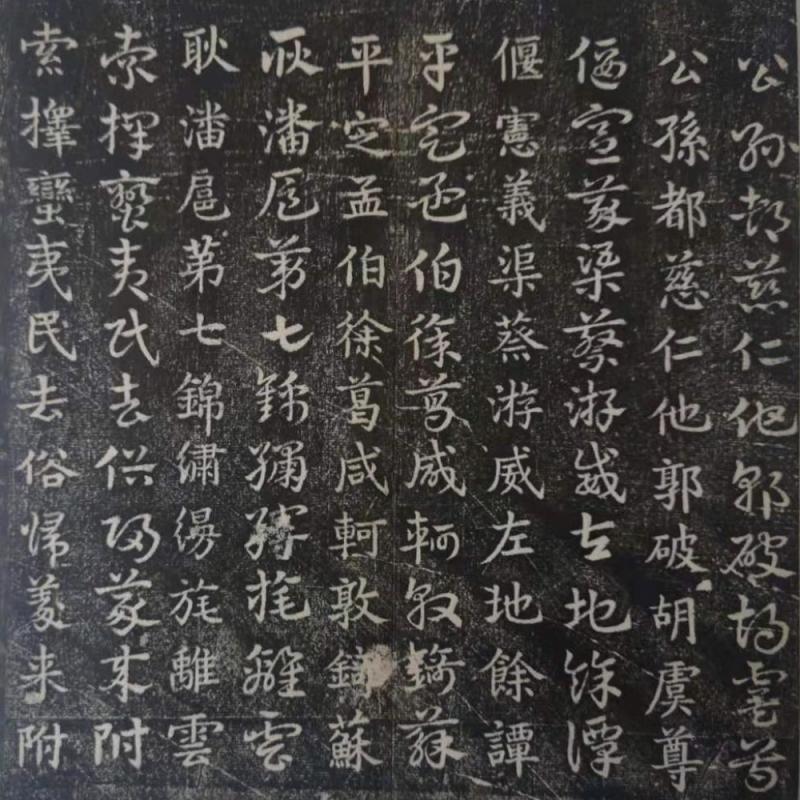 公孫都慈仁他郭破胡虞尊
公孫都慈仁他郭破胡虞尊
偃憲義渠蔡游威左地餘譚
偃憲義渠蒸游威左地餘譚
平定孟伯徐葛咸軻敦錡蘇
平定孟伯徐葛咸軻敦錡蘇
耿潘扈第七錦繡縵旄離雲
耿潘扈第七錦繡縵旄離雲
索擇蠻夷民去俗歸義来附
索擇蠻夷民去俗歸義来附